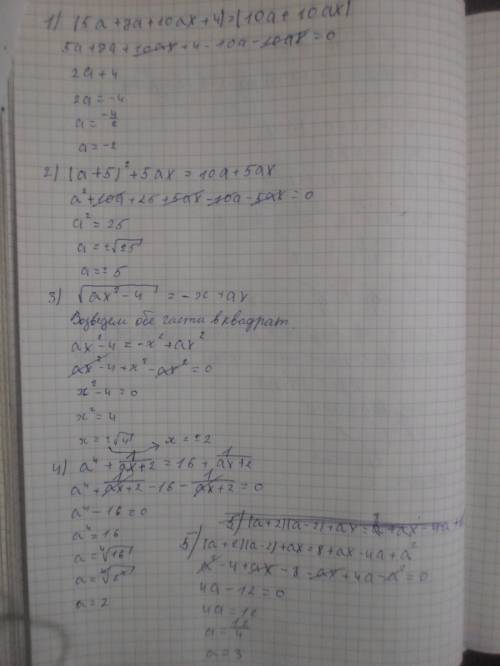 1) (5a + 7a + 10ax + 4) = (10a + 10ax)
5a + 7a + 10ax + 4 - 10a - 10ax = 0
2a + 4
2a = -4
a = -4/2
a = -2
2) (a + 5)² + 5ax = 10a + 5ax
a² + 10a + 25 + 5ax - 10a - 5ax = 0
a² = 25
a = ±√25
a = ± 5
3) √ax² - 4 = -x + ax
Возведем обе части в квадрат
ax² - 4 = -x² + ax²
ax² - 4 + x² - ax² = 0
x² - 4 = 0
x² = 4
x = ±√4 x = ±2
4) a⁴ + 1/ax+2 = 16 + 1/ax+2
a⁴ + 1/ax+2 - 16 - 1/ax+2 = 0
a⁴ - 16 = 0
a⁴ = 16
a = ⁴√16
a = ⁴√2⁴
a = 2
5) (a+2)(a-2) + ax = 8 + ax - 4a + a²
a² - 4 + ax - 8 - ax + 4a - a² = 0
4a - 12 = 0
4a = 12
a = 12/4
a = 3